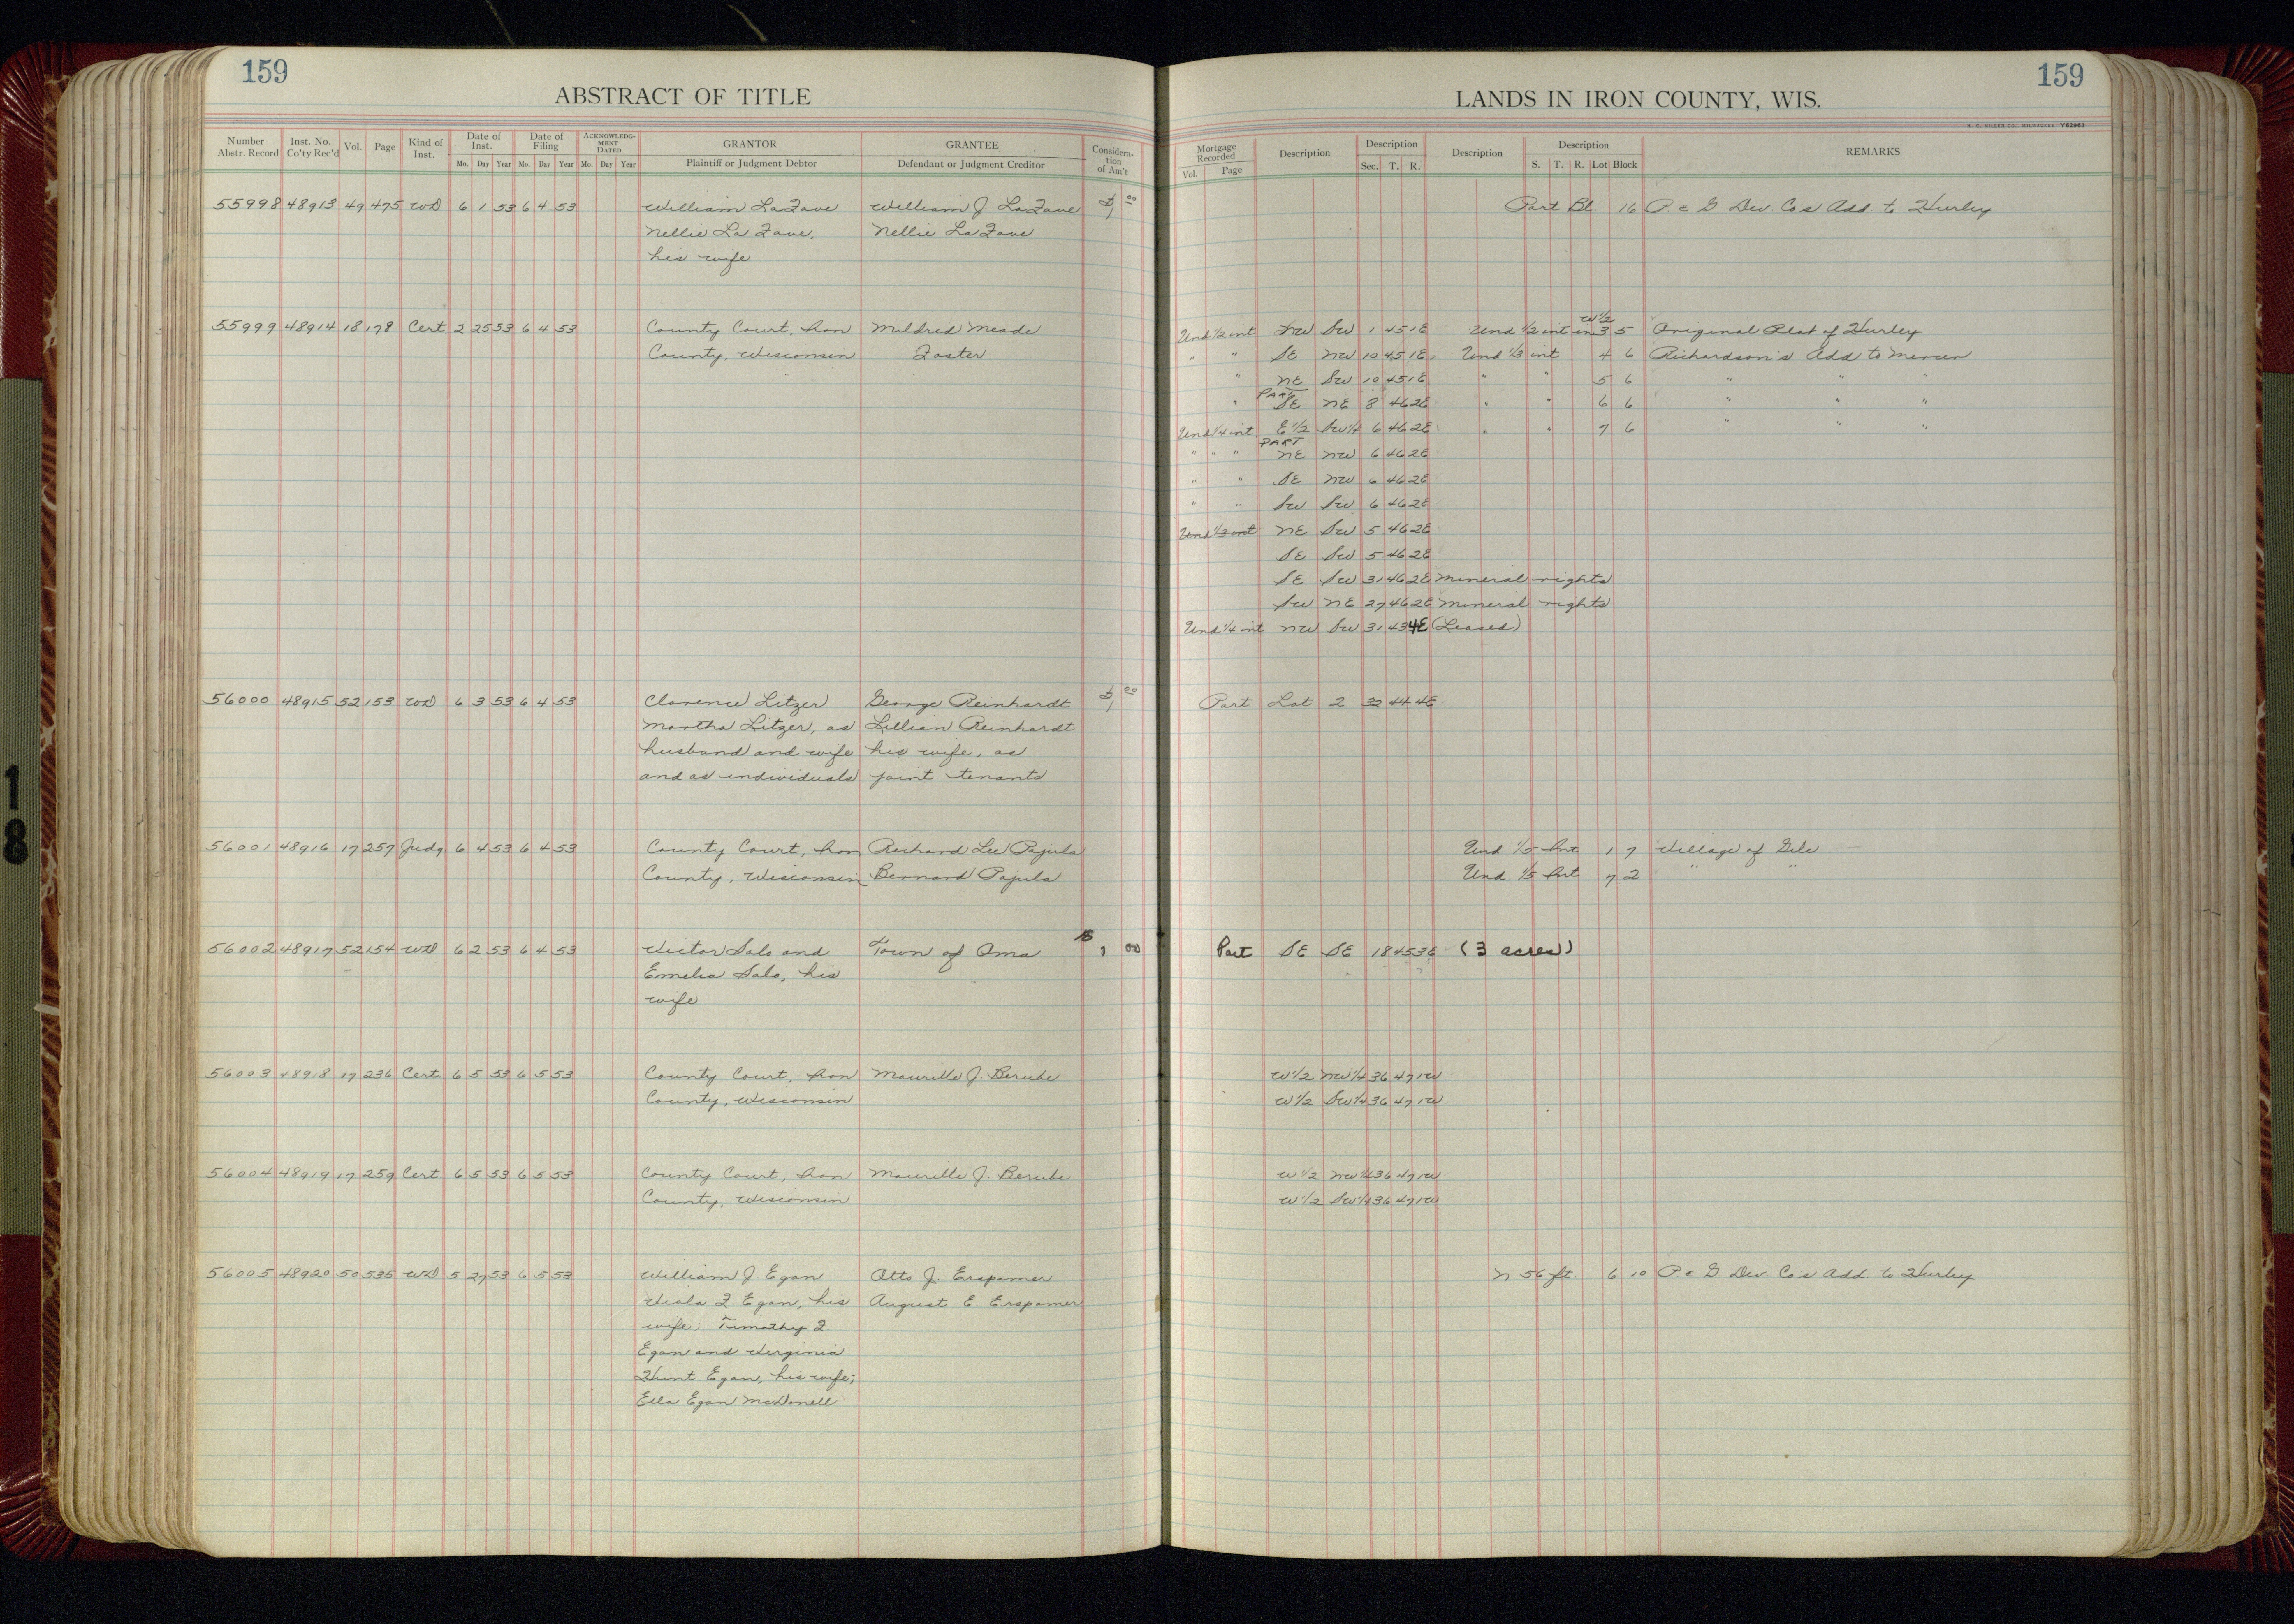 159
ABSTRACT OF TITLE
Number Abstr. Record Inst. No. Co'ty Rec'd Vol. Page Kind of Inst. Date of Inst. Date of Filing ACKNOWLEDG-MENT DATED GRANTOR GRANTEE Considera-tion of Am't
Mo. Day Year Mo. Day Year Mo. Day Year Plaintiff or Judgment Debtor Defendant or Judgment Creditor
55998 48913 49 475 WD 6 1 53 6 4 53 William LaFave William J. LaFave $1 00
Nellie La Fave, Nellie LaFave
his wife
55999 48914 18 178 Cert. 2 25 53 6 4 53 County Court, Iron Mildred Meade
County, Wisconsin Foster
56000 48915 52 153 WD 6 3 53 6 4 53 Clarence Litzer George Reinhardt $1 00
Martha Litzer, as Lillian Reinhardt
husband and wife his wife, as
and as individuals joint tenants
56001 48916 17 257 Judg. 6 4 53 6 4 53 County Court, Iron Richard Lee Pajula
County, Wisconsin Bernard Pajula
56002 48917 52 154 WD 6 2 53 6 4 53 Victor Salo and Town of Oma $1 00
Emelia Salo, his
wife
56003 48918 17 236 Cert. 6 5 53 6 5 53 County Court, Iron Maurille J. Berube
County, Wisconsin
56004 48919 17 259 Cert. 6 5 53 6 5 53 County Court, Iron Maurille J. Berube
County, Wisconsin
56005 48920 50 535 WD 5 27 53 6 5 53 William J Egan Otto J. Erspamer
Viola F. Egan, his August E. Erspamer
wife; Timothy F.
Egan and Virginia
Hunt Egan, his wife;
Ella Egan McDonell
159
LANDS IN IRON COUNTY, WIS.
H. C. MILLER CO., MILWAUKEE V82963
Mortgage Recorded Description Description Description Description REMARKS
Vol. Page Sec. T. R. S. T. R. Lot Block
Part Bl. 16 P & G Dev. Co's Add. to Hurley
W 1/2
Und 1/2 int NW SW 1 45 1E Und 1/2 int in 3 5 Original Plat of Hurley
" " SE NW 10 45 1E Und 1/3 int 4 6 Richardson's Add to Mercer
" NE SW 10 45 1E " " 5 6 " " "
PART
" SE NE 8 46 2E " " 6 6 " " "
Und 1/4 int E 1/2 SW 1/4 6 46 2E " " 7 6 " " "
PART
" " " NE NW 6 46 2E
" " SE NW 6 46 2E
" " SW SW 6 46 2E
Und 1/3 int NE SW 5 46 2E
SE SW 5 46 2E
SE SW 31 46 2E Mineral rights
SW NE 27 46 2E Mineral rights
Und 1/4 int NW SW 31 43 4E (Leased)
Part Lot 2 32 44 4E
Und. 1/5 Int 1 7 Village of Gile
Und. 1/5 Int 7 2 " "
Part SE SE 18 45 3E (3 acres)
W 1/2 NW 1/4 36 47 1W
W 1/2 SW 1/4 36 47 1W
W 1/2 NW 1/4 36 47 1W
W 1/2 SW 1/4 36 47 1W
N. 56 ft. 6 10 P & G. Dev. Co's Add. to Hurley
18